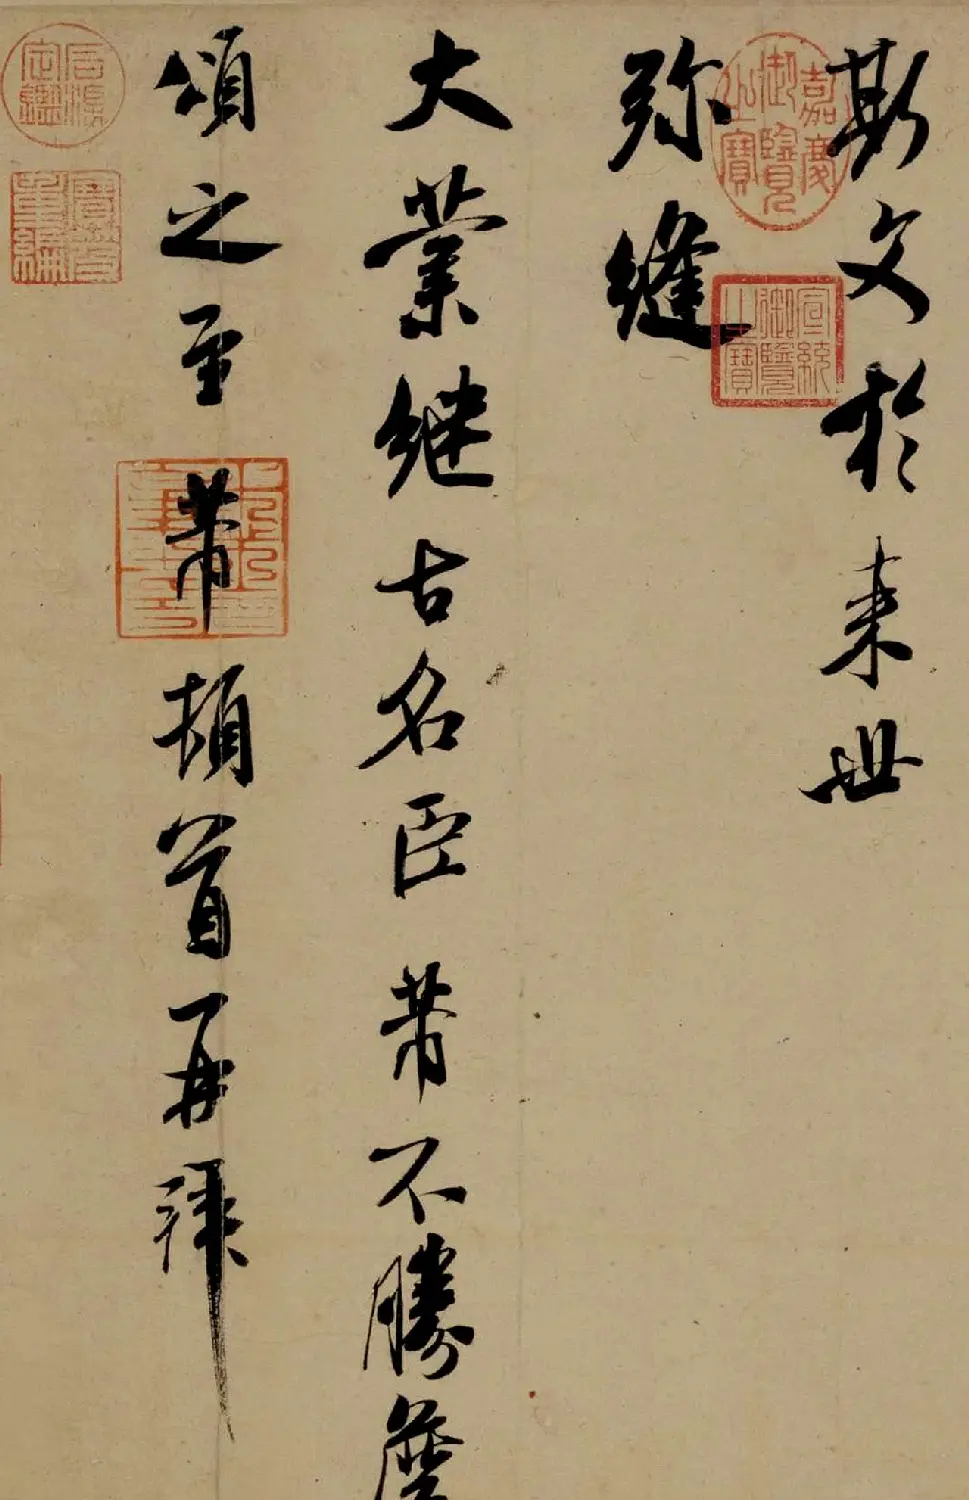 斯文於来世
嘉慶御覽之寶
宣統御覽之寶
弥縫
大業継古名臣芾不勝詹
頌之至芾頓首再拜
石渠定鑑
寶笈重編